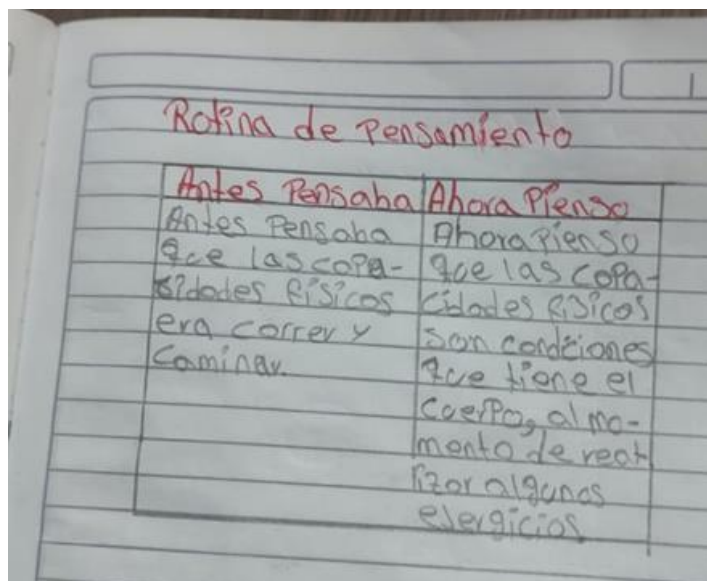 Rotina de Pensamiento
Antes Pensaba
Antes Pensaba
que las copa-
sidades físicos
era correr y
Caminar.
Ahora Pienso
Ahora Pienso
que las copa-
cidades físicos
son condciones
que tiene el
cuerpo, al mo-
mento de rea-
lizar algunos
ejergicios